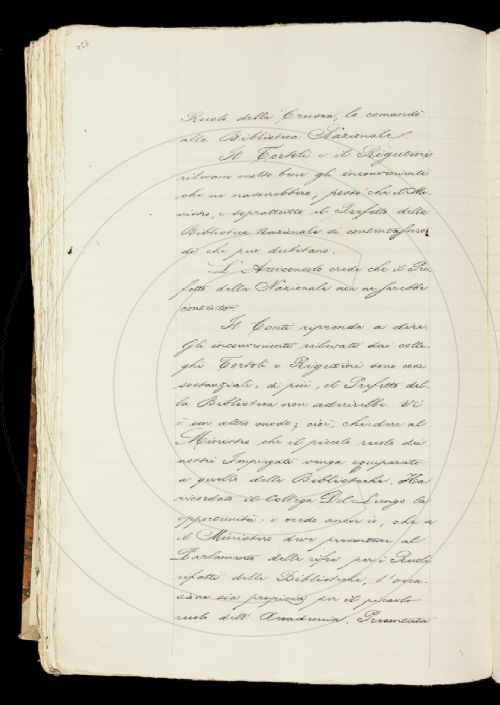 956
Ruolo della Crusca, lo comandò
alla Biblioteca Nazionale.
Il Tortoli e il Rigutini
rilevano molto bene gli inconvenienti
che ne nascerebbero, posto che il Mi-
nistro, e soprattutto il Prefetto della
Biblioteca Nazionale si contentassero
di che pur dubitano.
L'Arciconsolo crede che il Pre
fetto della Nazionale non ne sarebbe
contento.
Il Conti riprende a dire.
Gli inconvenienti rilevati dai colle-
ghi Tortoli e Rigutini sono cosa
sostanziale: di più, il Prefetto del-
la Biblioteca non aderirebbe. Vi
è un altro modo; cioè, chiedere al
Ministro che il piccolo ruolo dei
nostri Impiegati venga equiparato
a quello delle Biblioteche. Ha
ricordato il Collega Del Lungo la
opportunità: e credo ancor io, che se
il Ministero deve presentare al
Parlamento delle cifre per i Ruoli
rifatti delle Biblioteche, l'occa-
sione sia propizia per il piccolo
ruolo dell'Accademia. Presentata